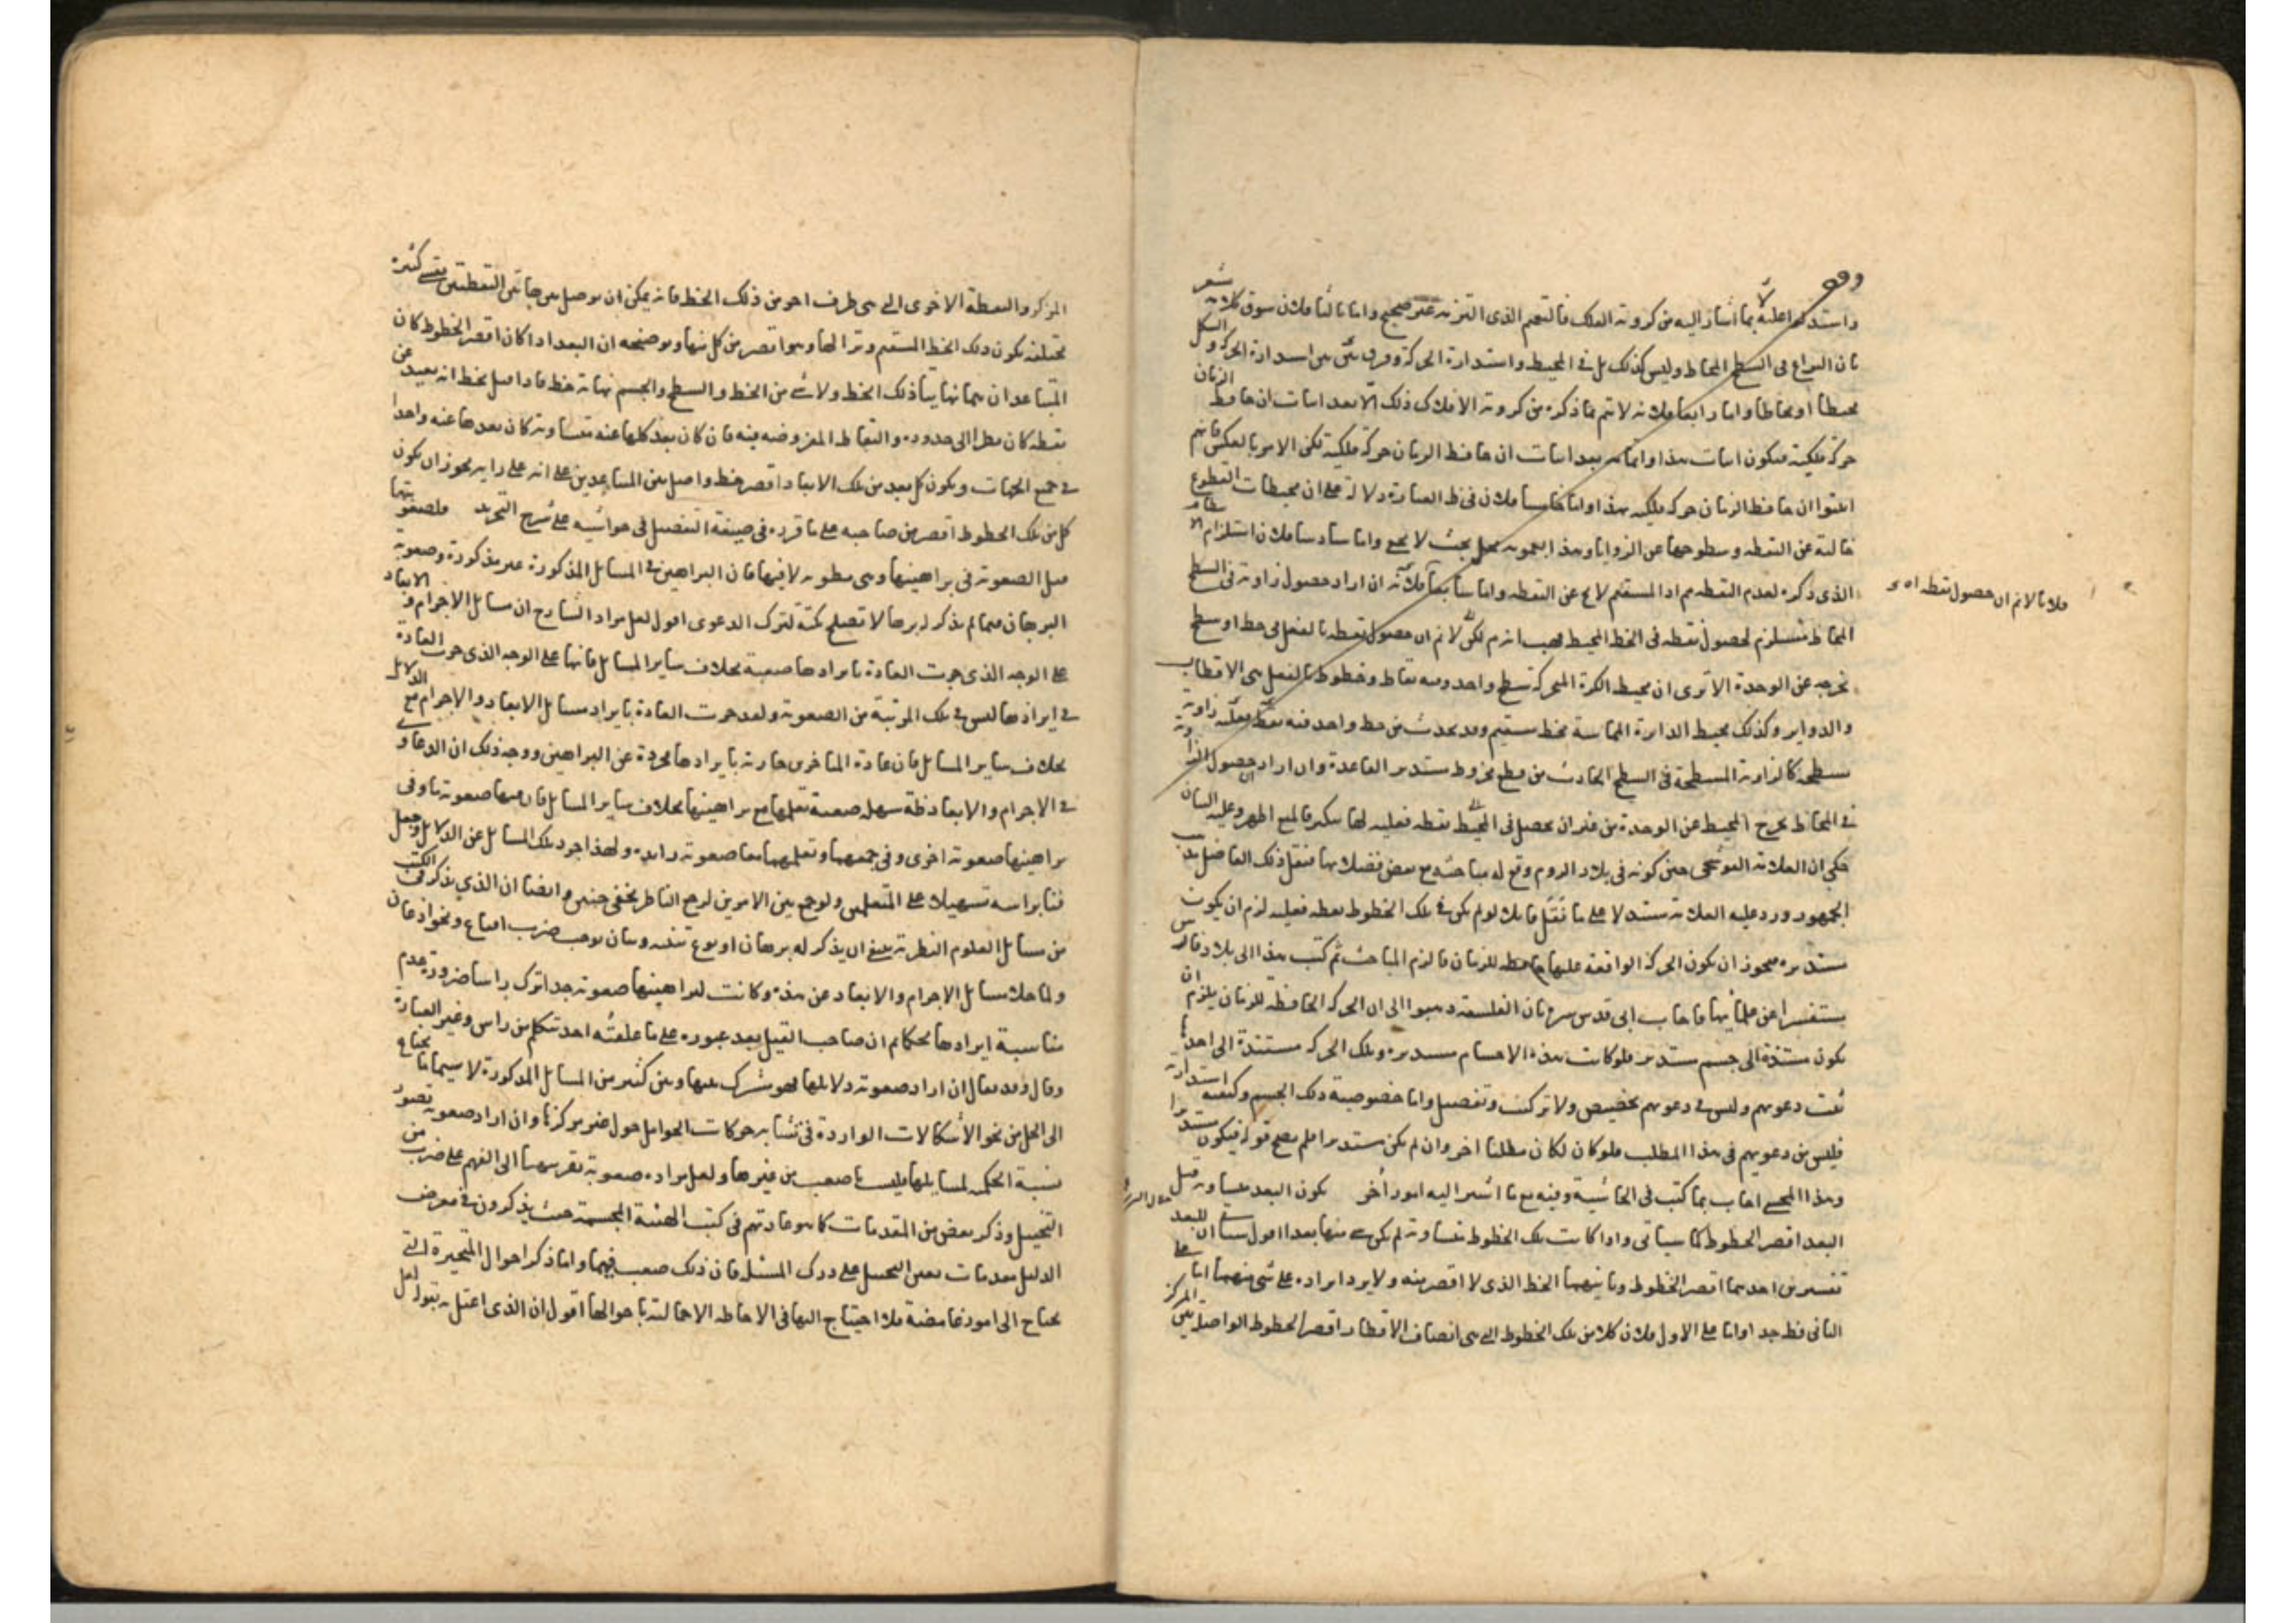 واستدلوا عليه بما اشار اليه من كروية الفلك فالتعميم الذى التزمه غير صحيح واما ثالثا فلان سوق كلامه يشعر
بان النزاع فى السطح المحاط وليس كذلك بل فى المحيط واستدارة الحركة وفرق بين استدارة الحركة والشكل
محيطا او محاطا واما رابعا فلانه لا يتم بما ذكره من كروية الافلاك ذلك الا بعد اثبات ان حافظ الزمان
حركة فلكية فيكون اثبات هذا بعد اثبات ان حافظ الزمان حركة فلكية لكن الامر بالعكس فانهم
اثبتوا ان حافظ الزمان حركة فلكية بهذا واما خامسا فلان فى العبارة دلالة على ان محيطات القطوع
خالية عن النقطة وسطوحها عن الزوايا وهذا بعمومه محل بحث لا يصح واما سادسا فلان استلزام
الذى ذكره لعدم النقطة ثم اذ المستقيم لا يخ عن النقطة واما سابعا فلانه ان اراد حصول زاوية فى السطح
فلانا لانم ان حصول نقطة
المحاط مستلزم لحصول نقطة فى الخط المحيط لكن لانم ان حصول نقطة بالفعل فى خط او سطح
يخرجه عن الوحدة الا ترى ان محيط الكرة المتحركة سطح واحد وفيه نقاط وخطوط بالفعل هى الاقطاب
والدواير وكذلك محيط الدايرة المماسة بخط مستقيم وقد يحدث من خط واحد فيه نقطة زاوية
مسطحة كالزاوية المسطحة فى السطح الحادث من قطع مخروط مستدير القاعدة وان اراد ان حصول الزاوية
فى المحاط يخرج المحيط عن الوحدة من غير ان يحصل فى المحيط نقطة فعلية لها فالمنع اظهر وعليه البيان
حكى ان العلامة القوشجى حين كونه فى بلاد الروم وقع له مباحثة مع بعض فضلائها فنقل ذلك الفاضل
الجمهور ورد عليه العلامة مستدلا على ما نقل قايلا لو لم يكن فى تلك الخطوط نقطة فعلية لزم ان يكون
مستديرة فيجوز ان يكون الحركة الواقعة عليها حافظة للزمان فالزم المباحث ثم كتب هذا الى بلاد فارس
مستفسرا عن علمائها فاجاب ابى قدس سره بان الفلسفة ذهبوا الى ان الحركة الحافظة للزمان يلزم ان
يكون مستندة الى جسم مستدير فلو كانت هذه الاجسام مستديرة وتلك الحركة مستندة الى احدها
ثبت دعويهم وليس فى دعويهم تخصيص ولا تركيب وتفصيل واما خصوصية ذلك الجسم وكيفية استدارته
فليس من دعويهم فى هذا المطلب فلو كان لكان مطلبا اخر وان لم يكن مستديرا فلم يصح قوله فيكون مستديرا
وهذا المحشى اجاب بما كتب فى الحاشية وفيه مع ما اشير اليه امور أخر يكون البعد متساوية قيل
البعد اقصر الخطوط كما سياتى واذا كانت تلك الخطوط متساوية لم يكن شى منها بعدا اقول سياتى ان للبعد
تفسيرين احدهما اقصر الخطوط وثانيهما الخط الذى لا اقصر منه ولا يرد ايراده على شى منهما اما على
الثانى فظ جدا واما على الاول فلان كلا من تلك الخطوط التى هى انصاف الاقطار اقصر الخطوط الواصلة بين المركز
المركز والنقطة الاخرى التى هى طرف اخر من ذلك الخط فانه يمكن ان يوصل بين هاتين النقطتين بقسى كثيرة
مختلفة يكون ذلك الخط المستقيم وترا لها وهو اقصر من كل منها وتوضيحه ان البعد اذا كان اقصر الخطوط كان
المتباعدان هما نهايتا ذلك الخط ولا شى من الخط والسطح والجسم نهاية خط فاذا قيل لخط انه بعيد عن
نقطة كان نظرا الى حدوده والنقاط المفروضة فيه فان كان بعد كلها عنه متساوية كان بعدها عنه واحدا
فى جميع الجهات ويكون كل بعد من تلك الابعاد اقصر خط واصل بين المتباعدين على انه على رايه يجوز ان يكون
كل من تلك الخطوط اقصر من صاحبه على ما قرره فى صيغة التفضيل فى حواشيه على شرح التجريد ولصعوبتها
قيل الصعوبة فى براهينها وهى مطوية لا فيها فان البراهين فى المسايل المذكورة غير مذكورة وصعوبة
البرهان فيما لم يذكر له برهان لا تصلح نكتة لترك الدعوى اقول لعل مراد الشارح ان مسايل الاجرام والابعاد
على الوجه الذى جرت العادة بايرادها صعبة بخلاف ساير المسايل فانها على الوجه الذى جرت العادة
فى ايرادها ليس فى تلك المرتبة من الصعوبة ولعد جرت العادة بايراد مسايل الابعاد والاجرام مع الدلايل
بخلاف ساير المسايل فان عادة المتاخرين جارية بايرادها مجردة عن البراهين ووجه ذلك ان الدعاوى
فى الاجرام والابعاد سهلة صعبة تعلمها مع براهينها بخلاف ساير المسايل فان فيها صعوبة ما وفى
براهينها صعوبة اخرى وفى جمعهما وتعلمهما معا صعوبة زايدة ولهذا جرد تلك المسايل عن الدلايل وجعل
تسهيلا على المتعلمين ولو جمع بين الامرين لرجع الناظر بخفى حنين وايضا ان الذى يذكر فى الكتب
من مسايل العلوم النظرية ينبغى ان يذكر له برهان او نوع تنبيه وبيان يوجب ضرب اقناع ونحو اذعان
ولما خلا مسايل الاجرام والابعاد عن هذه وكانت لبراهينها صعوبة جدا ترك راسا ضرورة عدم
مناسبة ايرادها ثم ان صاحب القيل بعد عبوره على ما علقته احد تكلم من راس وغير العبارة
وقال وقد يقال ان اراد صعوبة دلايلها فهو مشترك بينها وبين كثير من المسايل المذكورة لا سيما ما يحتاج
الى الحل من نحو الاشكالات الواردة فى تشابه حركات الحوامل حول غير مركزها وان اراد صعوبة تصور
نسبة الحكمية لمسايلها فليست اصعب من غيرها ولعل مراده صعوبة تقريبها الى الفهم على ضرب من
التخييل وذكر بعض من المقدمات كما هو عادتهم فى كتب الهيئة المجسمة حيث يذكرون فى معرض
الدليل مقدمات على درك المسئلة فان ذلك صعب فيهما واما ذكر احوال المتحيرة التى
يحتاج الى امور غامضة فلا احتياج اليها فى الاحاطة الاجمالية باحوالها اقول ان الذى